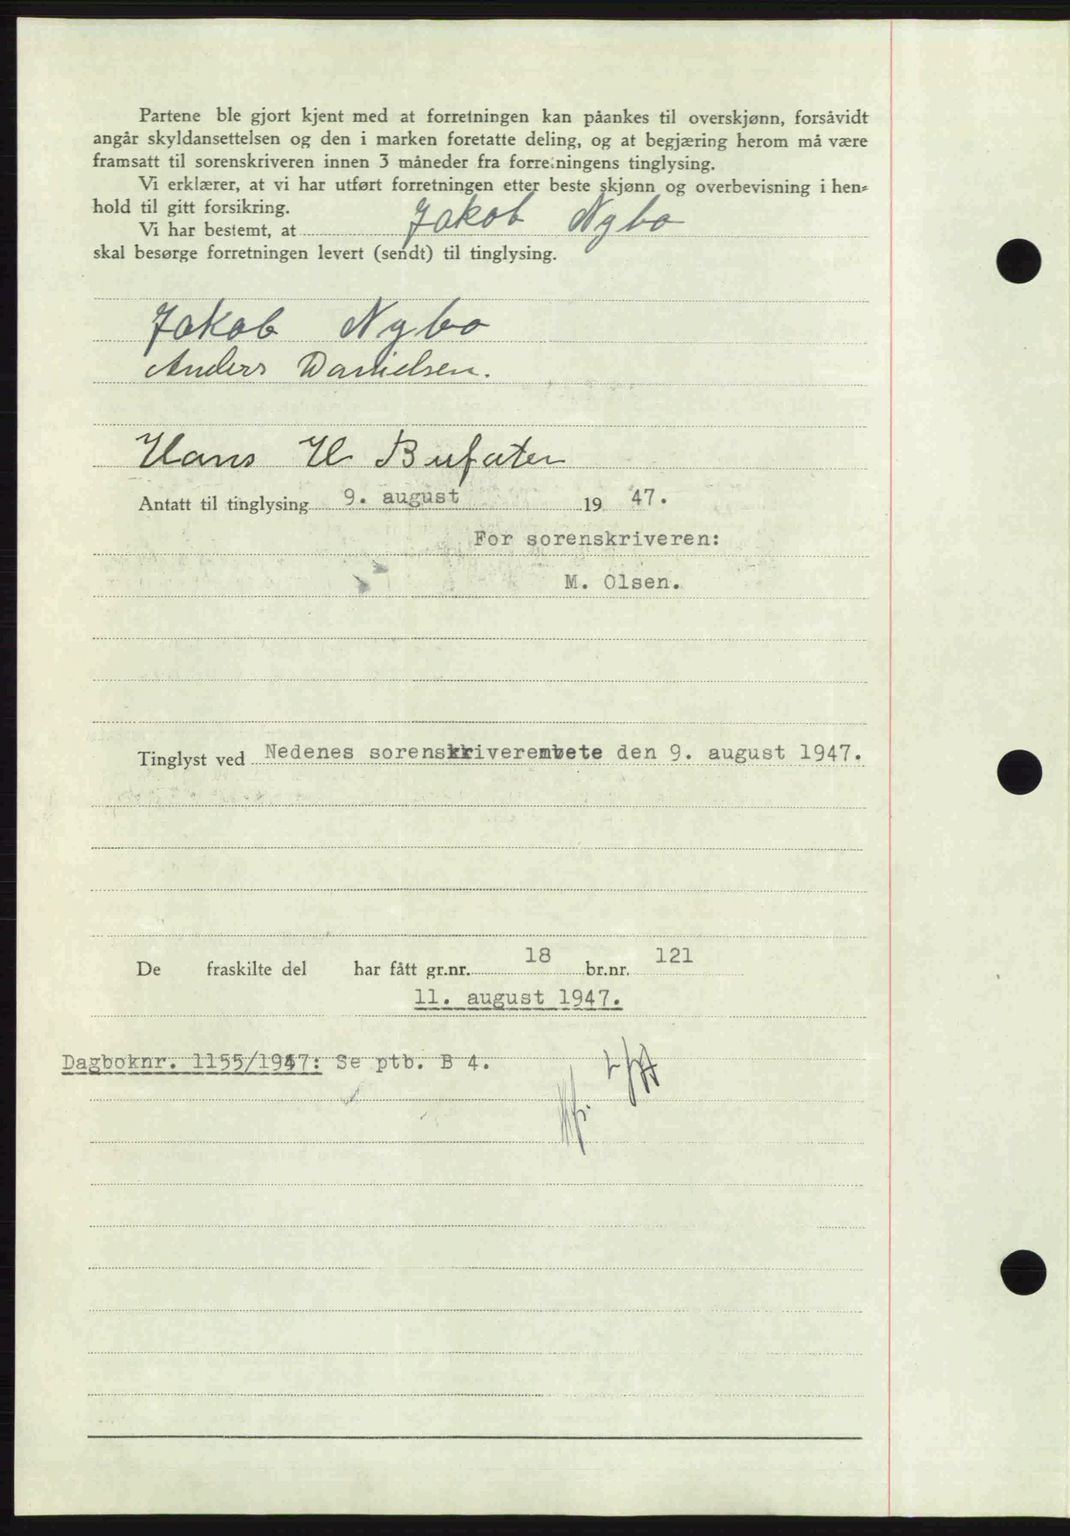 Partene ble gjort kjent med at forretningen kan påankes til overskjønn, forsåvidt
angår skyldansettelsen og den i marken foretatte deling, og at begjæring herom må være
framsatt til sorenskriveren innen 3 måneder fra forretningens tinglysing.
Vi erklærer, at vi har utført forretningen etter beste skjønn og overbevisning i hen-
hold til gitt forsikring.
Vi har bestemt, at Jakob Nybo
skal besørge forretningen levert (sendt) til tinglysing.
Jakob Nybo
Anders Danielsen.
Hans H Bufaten
Antatt til tinglysing 9. august 1947.
For sorenskriveren:
M. Olsen.
Tinglyst ved Nedenes sorenskriverembete den 9. august 1947.
De fraskilte del har fått gr.nr. 18 br.nr. 121
11. august 1947.
Dagboknr. 1155/1947: Se ptb. B 4.